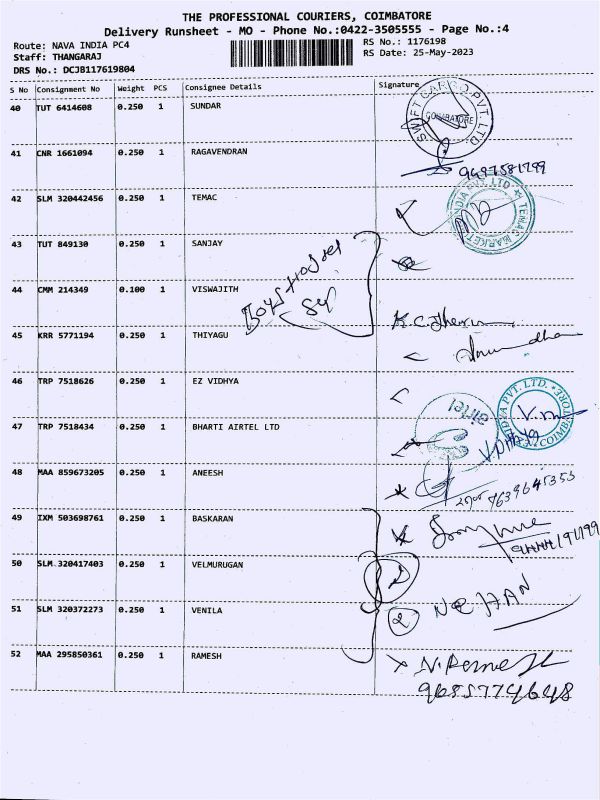 THE PROFESSIONAL COURIERS, COIMBATORE
Delivery Runsheet - MO - Phone No.:0422-3505555 - Page No.:4
Route: NAVA INDIA PC4
Staff: THANGARAJ
DRS No.: DCJB117619804
RS No.: 1176198
RS Date: 25-May-2023
S No Consignment No Weight PCS Consignee Details Signature
40 TUT 6414608 0.250 1 SUNDAR
SWIFT CARGO PVT. LTD.
COIMBATORE
41 CNR 1661094 0.250 1 RAGAVENDRAN
9497581799
42 SLM 320442456 0.250 1 TEMAC
INDIA PVT. LTD. ★ TEMAC MARKET
43 TUT 849130 0.250 1 SANJAY
Boys Hostel
44 CMM 214349 0.100 1 VISWAJITH
45 KRR 5771194 0.250 1 THIYAGU
46 TRP 7518626 0.250 1 EZ VIDHYA
INDIA PVT. LTD.
47 TRP 7518434 0.250 1 BHARTI AIRTEL LTD
airtel
48 MAA 859673205 0.250 1 ANEESH
7639645355
49 IXM 503698761 0.250 1 BASKARAN
50 SLM 320417403 0.250 1 VELMURUGAN
51 SLM 320372273 0.250 1 VENILA
52 MAA 295850361 0.250 1 RAMESH
N. Ramesh
9685774648